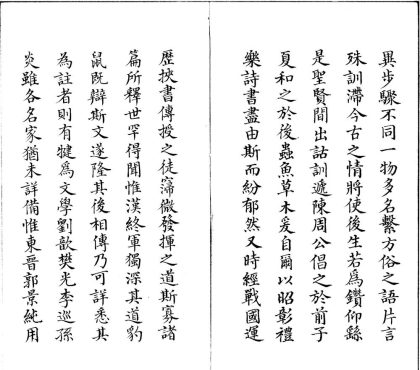 異步驟不同一物多名繫方俗之語片言
殊訓滯今古之情將使後生若爲鑽仰繇
是聖賢間出詁訓遞陳周公倡之於前子
夏和之於後蟲魚草木爰自爾以昭彰禮
樂詩書盡由斯而紛郁然又時經戰國運
歷挾書傳授之徒寖微發揮之道斯寡諸
篇所釋世罕得聞惟漢終軍獨深其道豹
鼠既辯斯文遂隆其後相傳乃可詳悉其
為註者則有犍爲文學劉歆樊光李巡孫
炎雖各名家猶未詳備惟東晉郭景純用